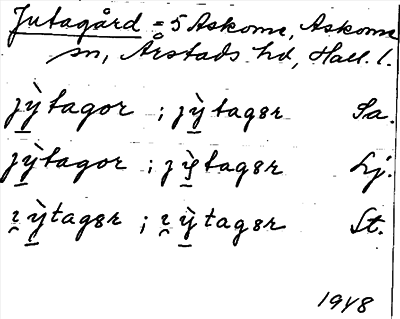 Jutagård = 5 Askome, Askome
sn, Årstads hd, Hall. l.
jỳ̠tagor ; jỳ̠tagɜr Sa.
jỳ̠tagor ; jỳ̠tagɜr Lj.
ı̯ỳ̠tagɜr ; ı̯ỳ̠tagɜr St.
1948